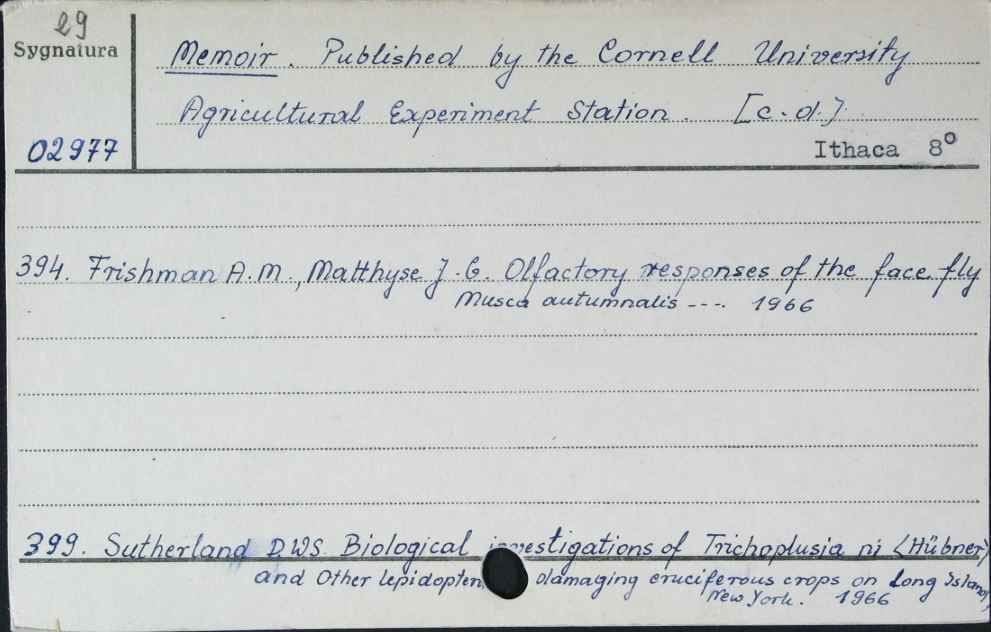 29
Sygnatura
Memoir. Published by the Cornell University
Agricultural Experiment Station. [c.d.]
02977
Ithaca 8°
394. Frishman A.M., Matthyse J.G. Olfactory responses of the face fly
Musca autumnalis ---. 1966
399. Sutherland D.W.S. Biological investigations of Trichoplusia ni <Hübner>
and other lepidopten damaging cruciferous crops on Long Island,
New York. 1966